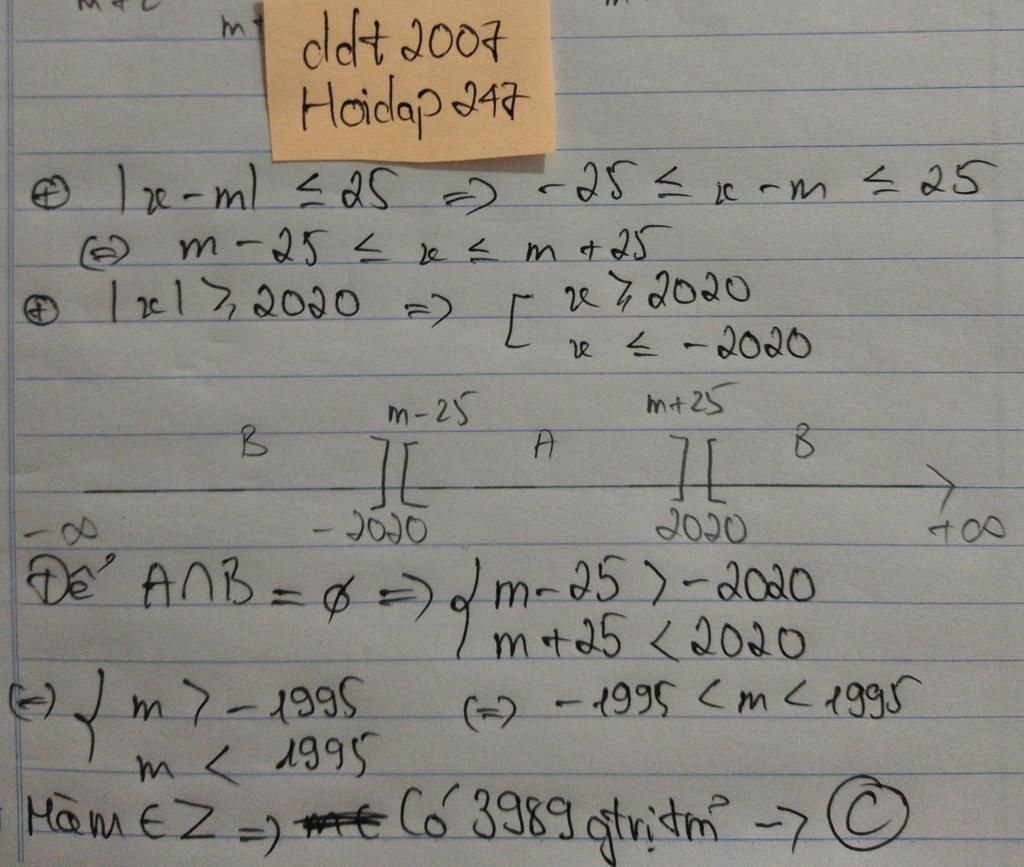 ddt 2007
Hoidap 247
⊕ |x-m| ≤ 25 => -25 ≤ x - m ≤ 25
(=) m - 25 ≤ x ≤ m + 25
⊕ |x| ≥ 2020 => [ x ≥ 2020
x ≤ -2020
m-25 m+25
B ][ A ][ B
-∞ -2020 2020 +∞
Để A∩B = ∅ => { m - 25 > -2020
m + 25 < 2020
(=) { m > -1995 (=) -1995 < m < 1995
m < 1995
Mà m ∈ Z => Có 3989 gtrị tm² -> C